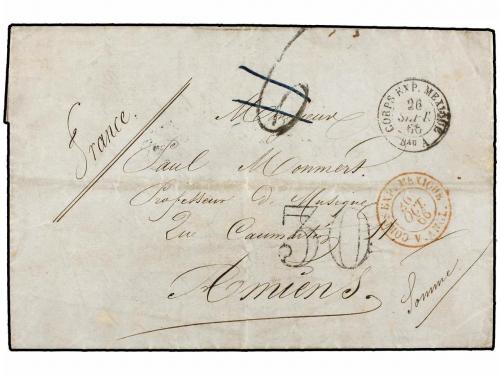 France.
Monsieur
Paul Monmert
Professeur de Musique
Rue Caumartin 11
Amiens.
Somme
6
30
CORPS EXP. MEXIQUE
26
SEPT.
66
Bau A
CORPS EXP. MEXIQUE
66
V. ANGL.